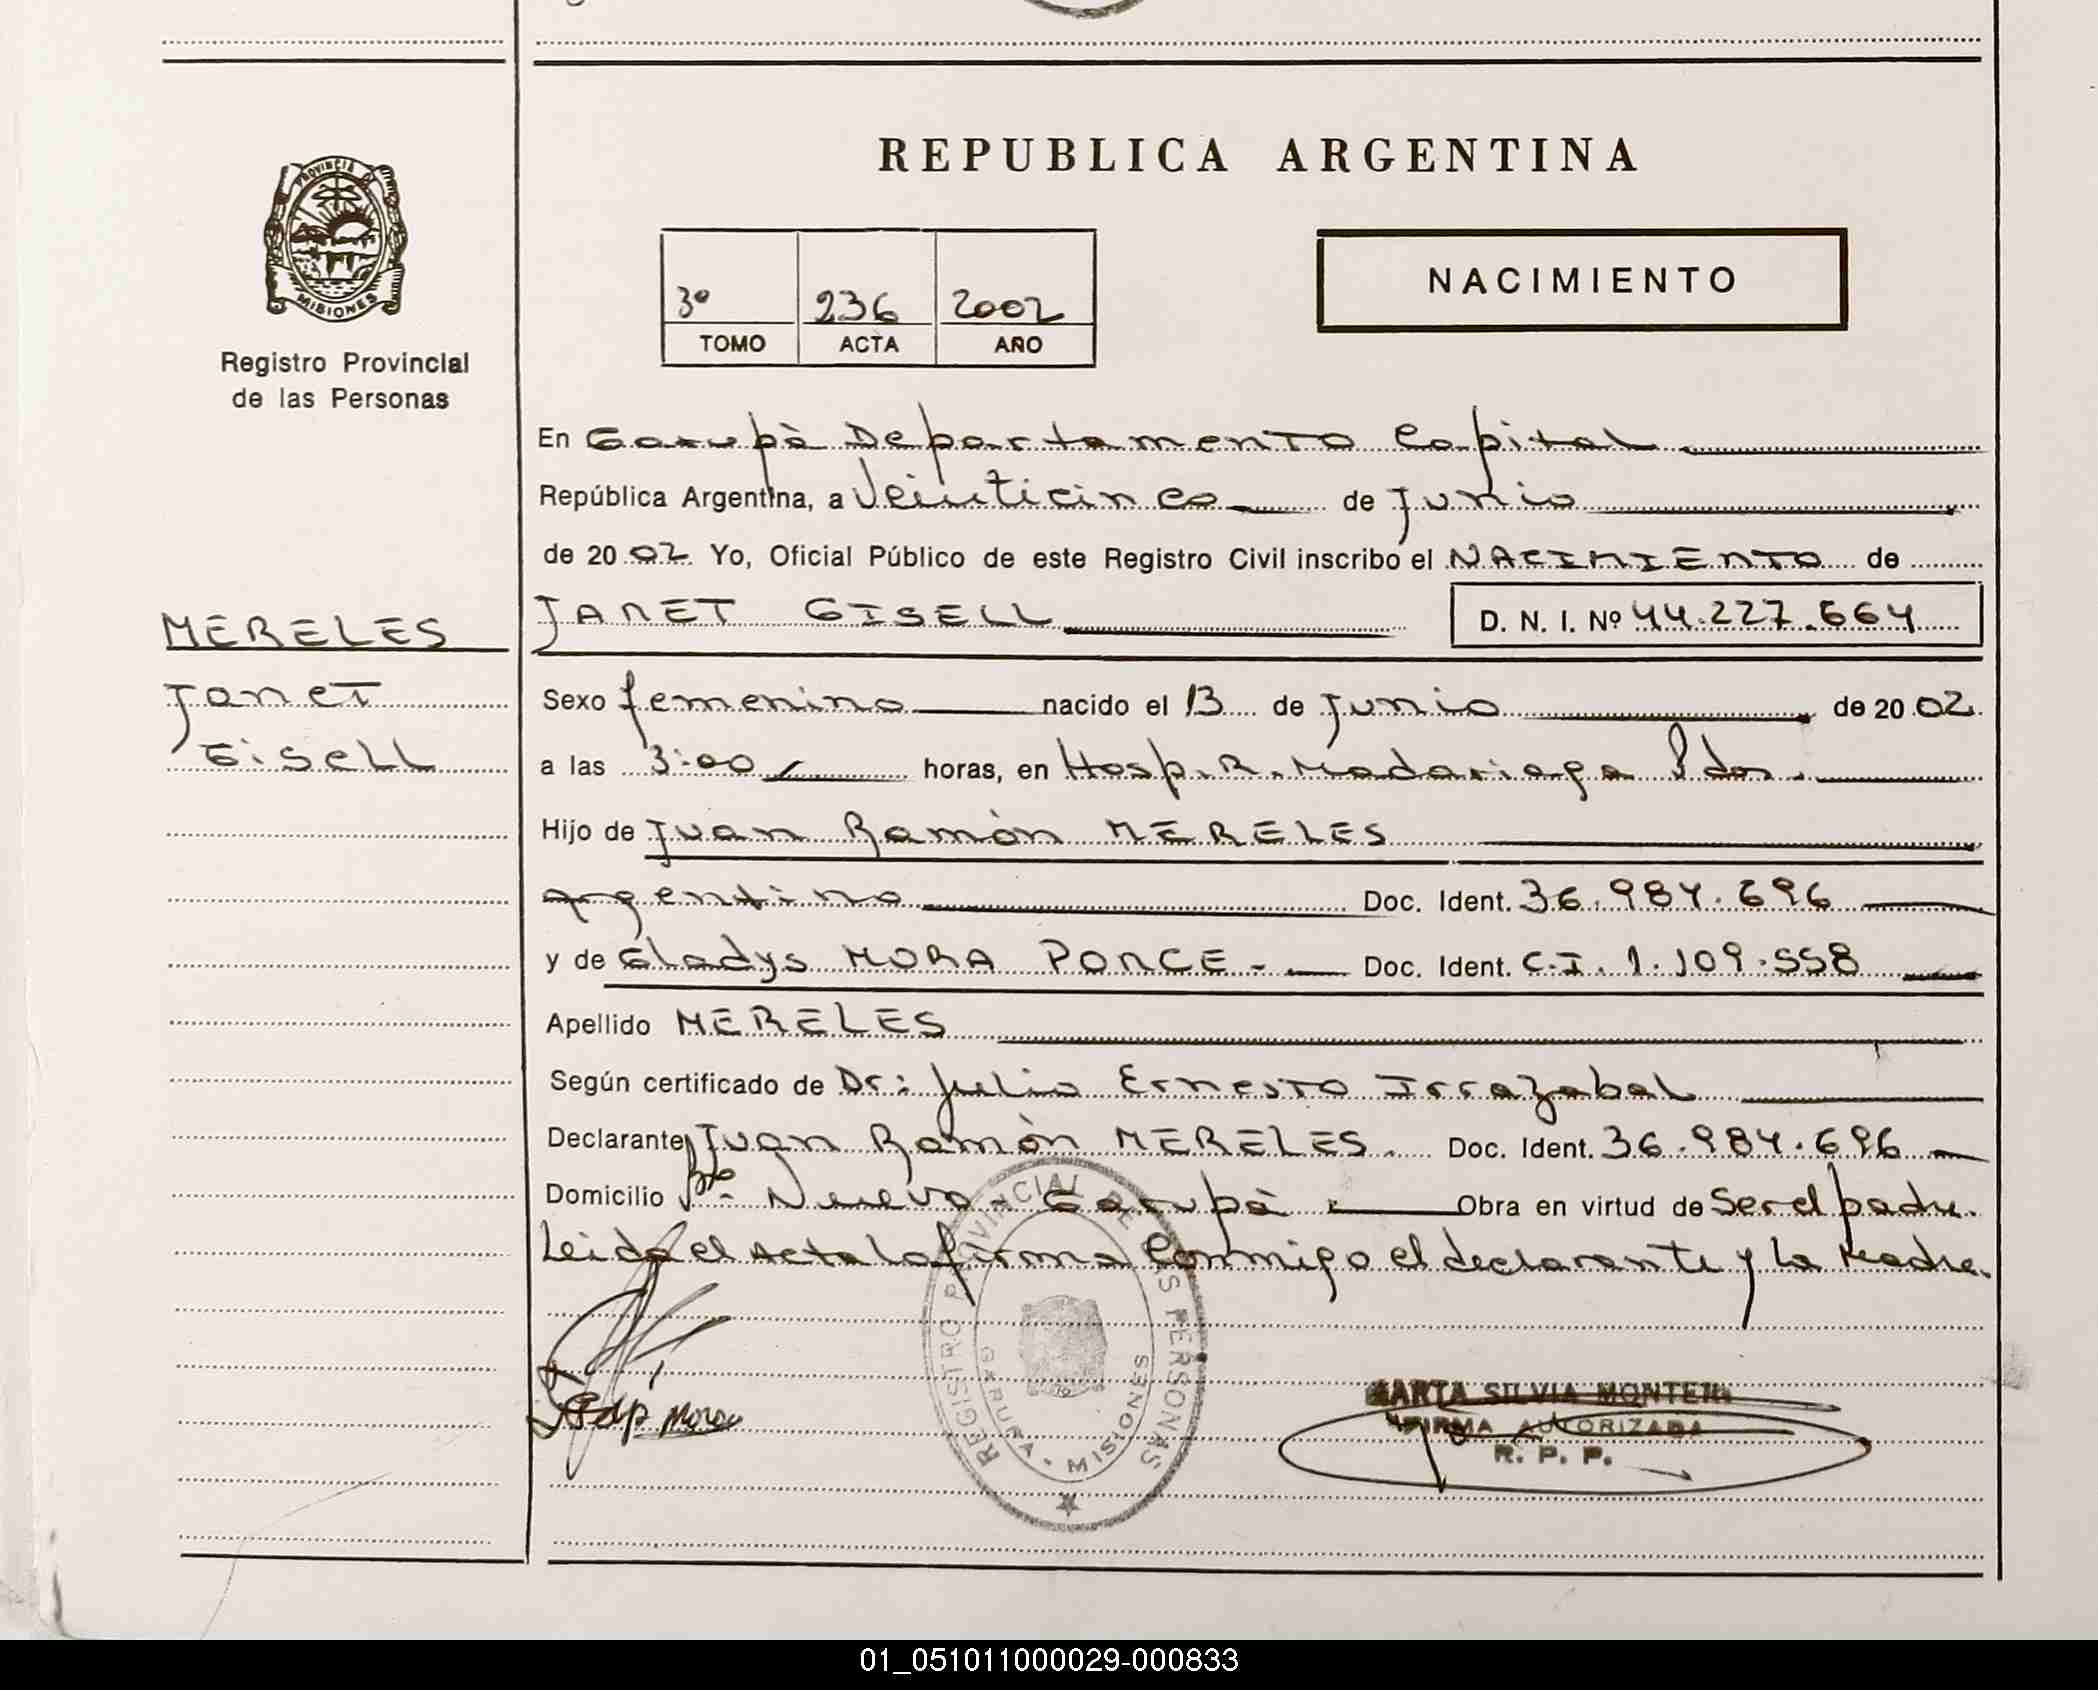 REPUBLICA ARGENTINA
PROVINCIA DE MISIONES
Registro Provincial
de las Personas
3º 236 2002
TOMO ACTA AÑO
NACIMIENTO
En Garupà Departamento Capital
República Argentina, a Veinticinco de Junio
de 2002 Yo, Oficial Público de este Registro Civil inscribo el NACIMIENTO de
MERELES
Janet
Gisell
JANET GISELL D. N. I. Nº 44.227.664
Sexo femenino nacido el 13 de Junio de 2002
a las 3:00 horas, en Hosp. R. Madariaga Pdas.
Hijo de Juan Ramòn MERELES
argentino Doc. Ident. 36.984.696
y de Gladys MORA PONCE.- Doc. Ident. C.I. 1.109.558
Apellido MERELES
Según certificado de Dr: Julio Ernesto Irrazabal
Declarante Juan Ramòn MERELES. Doc. Ident. 36.984.696
Domicilio Bº Nuevo Garupà Obra en virtud de Ser el padre.
Leida el Acta la firma Conmigo el declarante y la Madre.
REGISTRO PROVINCIAL DE LAS PERSONAS
GARUPA - MISIONES
Mora
MARTA SILVIA MONTEIRO
FIRMA AUTORIZADA
R. P. P.
01_051011000029-000833